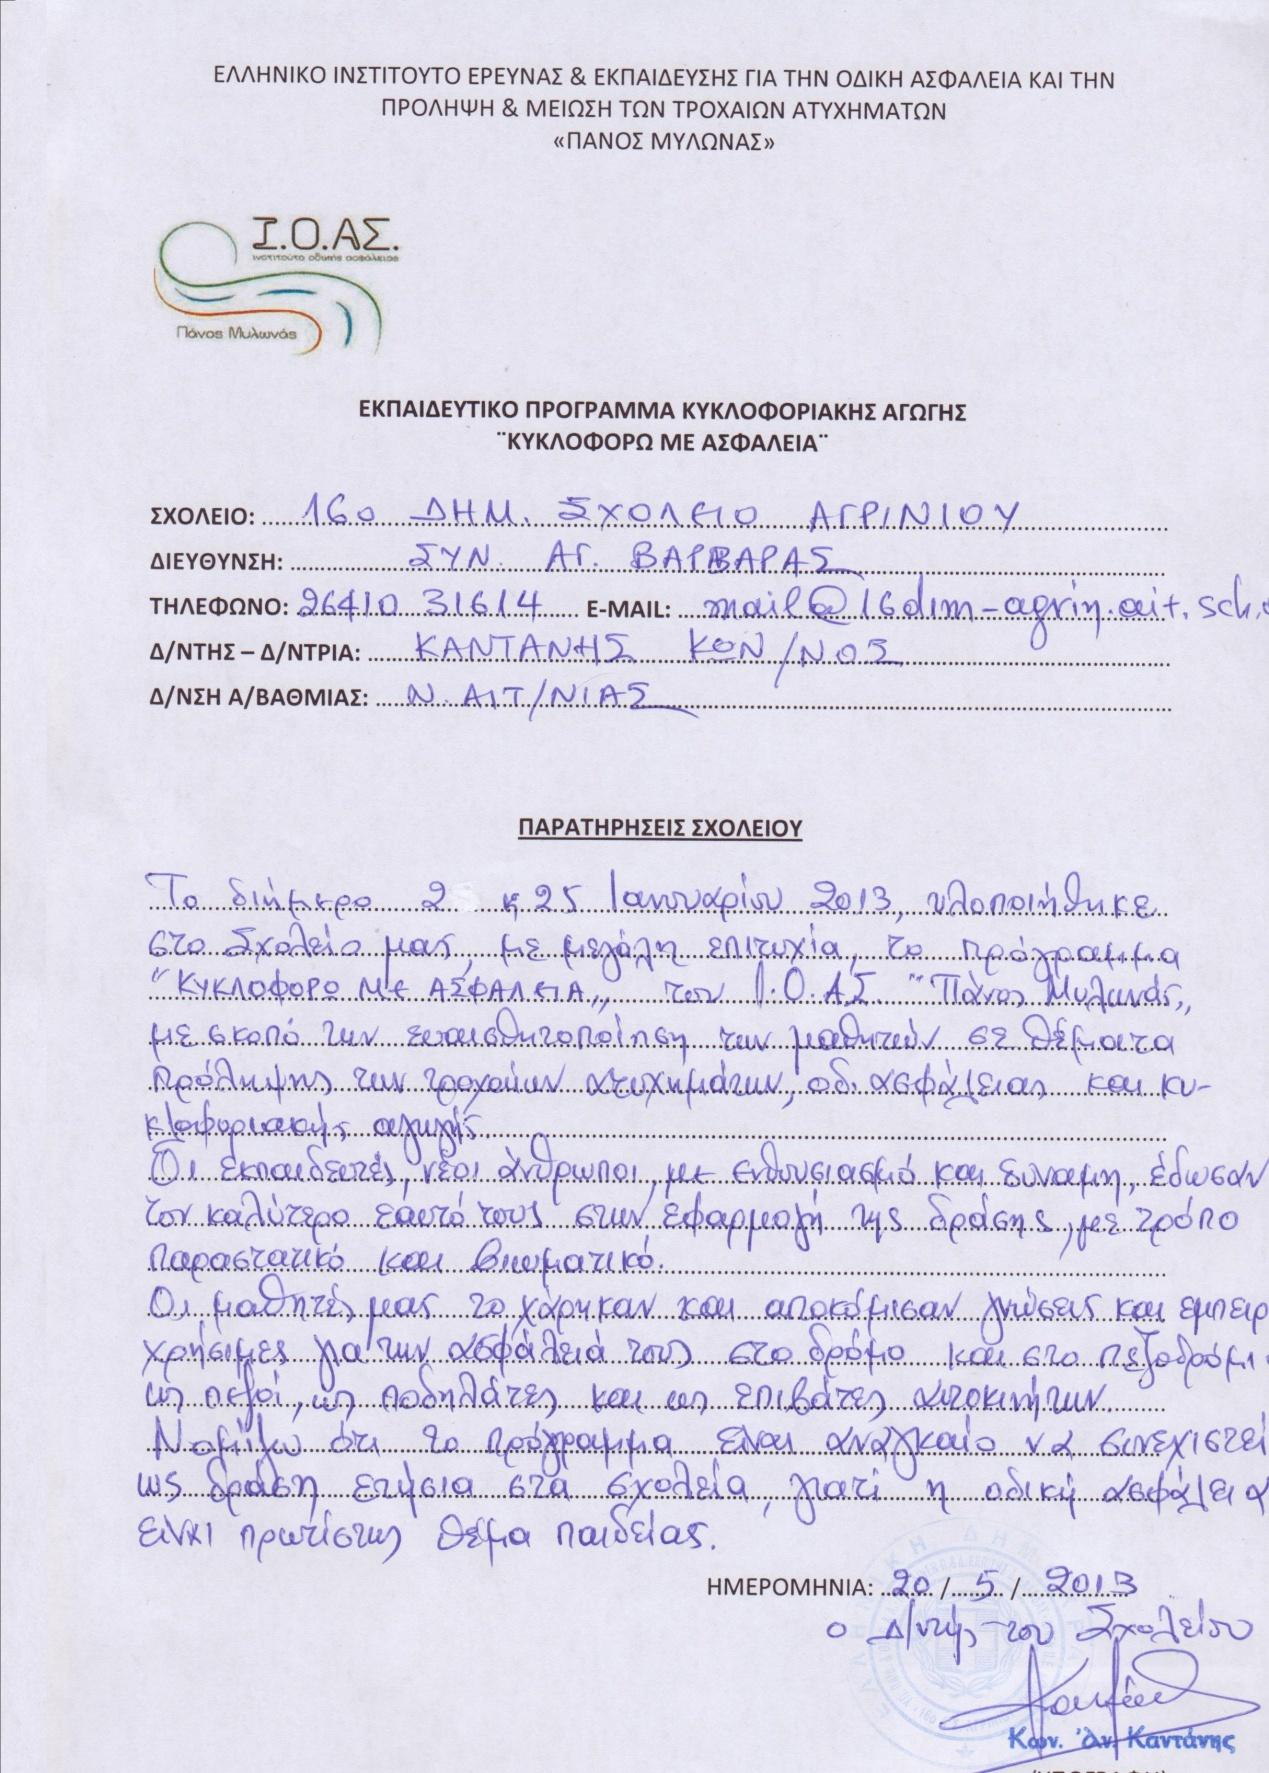 ΕΛΛΗΝΙΚΟ ΙΝΣΤΙΤΟΥΤΟ ΕΡΕΥΝΑΣ & ΕΚΠΑΙΔΕΥΣΗΣ ΓΙΑ ΤΗΝ ΟΔΙΚΗ ΑΣΦΑΛΕΙΑ ΚΑΙ ΤΗΝ
ΠΡΟΛΗΨΗ & ΜΕΙΩΣΗ ΤΩΝ ΤΡΟΧΑΙΩΝ ΑΤΥΧΗΜΑΤΩΝ
«ΠΑΝΟΣ ΜΥΛΩΝΑΣ»
Ι.Ο.ΑΣ.
ινστιτούτο οδικής ασφάλειας
Πάνος Μυλωνάς
ΕΚΠΑΙΔΕΥΤΙΚΟ ΠΡΟΓΡΑΜΜΑ ΚΥΚΛΟΦΟΡΙΑΚΗΣ ΑΓΩΓΗΣ
¨ΚΥΚΛΟΦΟΡΩ ΜΕ ΑΣΦΑΛΕΙΑ¨
ΣΧΟΛΕΙΟ: 16ο ΔΗΜ. ΣΧΟΛΕΙΟ ΑΓΡΙΝΙΟΥ
ΔΙΕΥΘΥΝΣΗ: ΣΥΝ. ΑΓ. ΒΑΡΒΑΡΑΣ
ΤΗΛΕΦΩΝΟ: 26410 31614 E-MAIL: mail@16dim-agrin.ait.sch.
Δ/ΝΤΗΣ – Δ/ΝΤΡΙΑ: ΚΑΝΤΑΝΗΣ ΚΩΝ/ΝΟΣ
Δ/ΝΣΗ Α/ΒΑΘΜΙΑΣ: Ν. ΑΙΤ/ΝΙΑΣ
ΠΑΡΑΤΗΡΗΣΕΙΣ ΣΧΟΛΕΙΟΥ
Το διήμερο 2 κ 25 Ιανουαρίου 2013, υλοποιήθηκε
στο Σχολείο μας, με μεγάλη επιτυχία, το πρόγραμμα
"ΚΥΚΛΟΦΟΡΩ ΜΕ ΑΣΦΑΛΕΙΑ„ του Ι.Ο.Α.Σ. "Πάνος Μυλωνάς„
με σκοπό την ευαισθητοποίηση των μαθητών σε θέματα
πρόληψης των τροχαίων ατυχημάτων, οδ. ασφάλειας και κυ-
κλοφοριακής αγωγής.
Οι εκπαιδευτές, νέοι άνθρωποι, με ενθουσιασμό και δύναμη, έδωσαν
τον καλύτερο εαυτό τους στην εφαρμογή της δράσης, με τρόπο
παραστατικό και βιωματικό.
Οι μαθητές μας το χάρηκαν και αποκόμισαν γνώσεις και εμπειρ
χρήσιμες για την ασφάλειά τους στο δρόμο και στο πεζοδρόμι
ως πεζοί, ως ποδηλάτες και ως επιβάτες αυτοκινήτων.
Νομίζω ότι το πρόγραμμα είναι αναγκαίο να συνεχιστεί
ως δράση ετήσια στα σχολεία, γιατί η οδική ασφάλεια
είναι πρωτίστως θέμα παιδείας.
ΗΜΕΡΟΜΗΝΙΑ: 20 / 5 / 2013
ο Δ/ντής του Σχολείου
Κων. Αν. Καντάνης